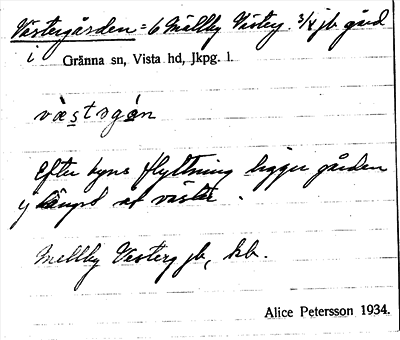 Västergården = 6 Mellby Västerg. 3/4 jb gård
i Gränna sn, Vista hd, Jkpg. l.
væstrgån
Efter byns flyttning ligger gården
ej längst åt väster.
Mellby Västerg jb, kb.
Alice Petersson 1934.